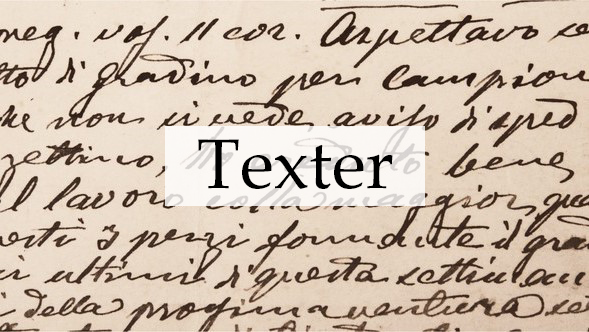 neg. vol. 11 cor. Aspettavo se
tto di gradino per campion
che non si vede avito di sped
rettino, bene,
Texter
l lavoro colla maggior, qua
questi 3 pezzi fonndute il gra
ir ultimi di questa settiman
i della prossima ventura se